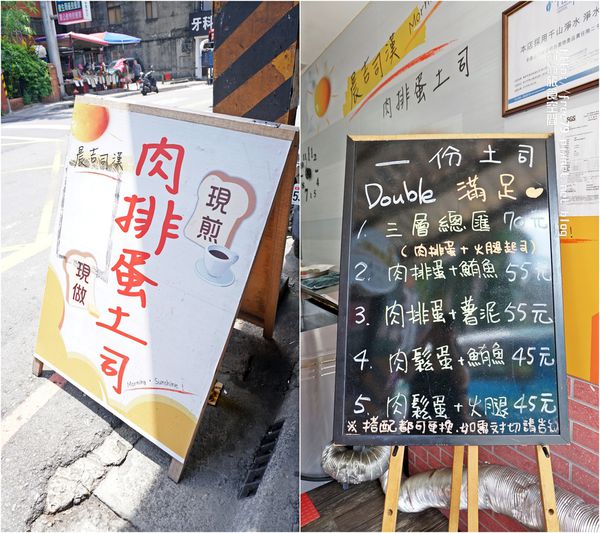 牙科
晨吉司漢
肉排蛋土司
現煎
現做
Morning · Sunshine!
晨吉司漢
肉排蛋土司
本店採用千山淨水
一份土司
Double 滿足
1. 三層總匯 70元
(肉排蛋+火腿起司)
2. 肉排蛋+鮪魚 55元
3. 肉排蛋+薯泥 55元
4. 肉鬆蛋+鮪魚 45元
5. 肉鬆蛋+火腿 45元
※搭配都可更換.如需對切請告知
SGS